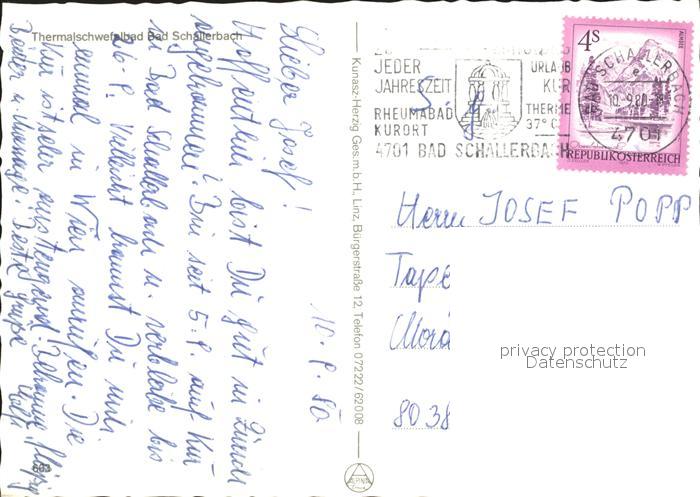 Thermalschwefelbad Bad Schallerbach
Lieber Josef!
Hoffentlich bist Du gut in Zürich
angekommen? Bin seit 5.9. auf Kur
in Bad Schallerbach u. verbleibe bis
26.9. Vielleicht kannst Du mich
einmal in Wien anrufen. Die
Kur ist sehr anstrengend.
Bäder u. Massage. Beste Grüße
10.9.80
603
Kunasz-Herzig Ges.m.b.H., Linz, Bürgerstraße 12, Telefon 07222/62008
JEDER
JAHRESZEIT
RHEUMABAD
KURORT
URLAUB
KUR
THERME
37°C
4701 BAD SCHALLERBACH
BAD SCHALLERBACH
10.-9.80
4701
4S
ALMSEE
REPUBLIK ÖSTERREICH
Herrn JOSEF POPP
8038
privacy protection
Datenschutz